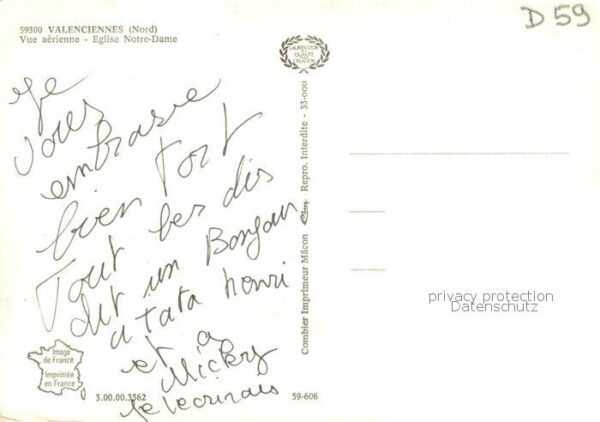 D 59
59300 VALENCIENNES (Nord)
Vue aérienne - Eglise Notre-Dame
LAURIER D'OR
DE LA
QUALITÉ
CRÉATION
Je
vous
embrasse
bien Fort
Tout les dis
dit un Bonjour
a tata henri
et a
Mickey
je lecrirais
Combier Imprimeur Mâcon Cim Repro. Interdite - 33-000
privacy protection
Datenschutz
Image
de France
Imprimée
en France
3.00.00.3562
59-606